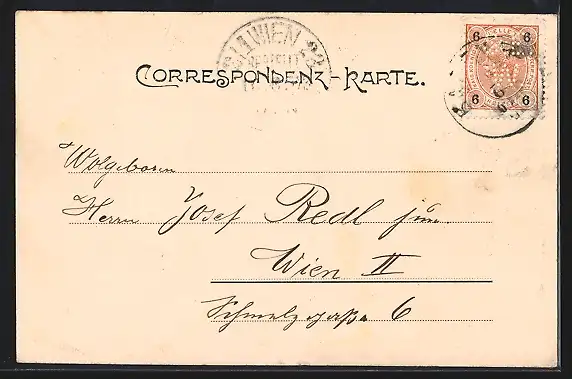 WIEN
CORRESPONDENZ-KARTE.
6 6
6 6
Wolgeboren
Herrn Josef Redl jun.
Wien II
Schmelzgasse 6